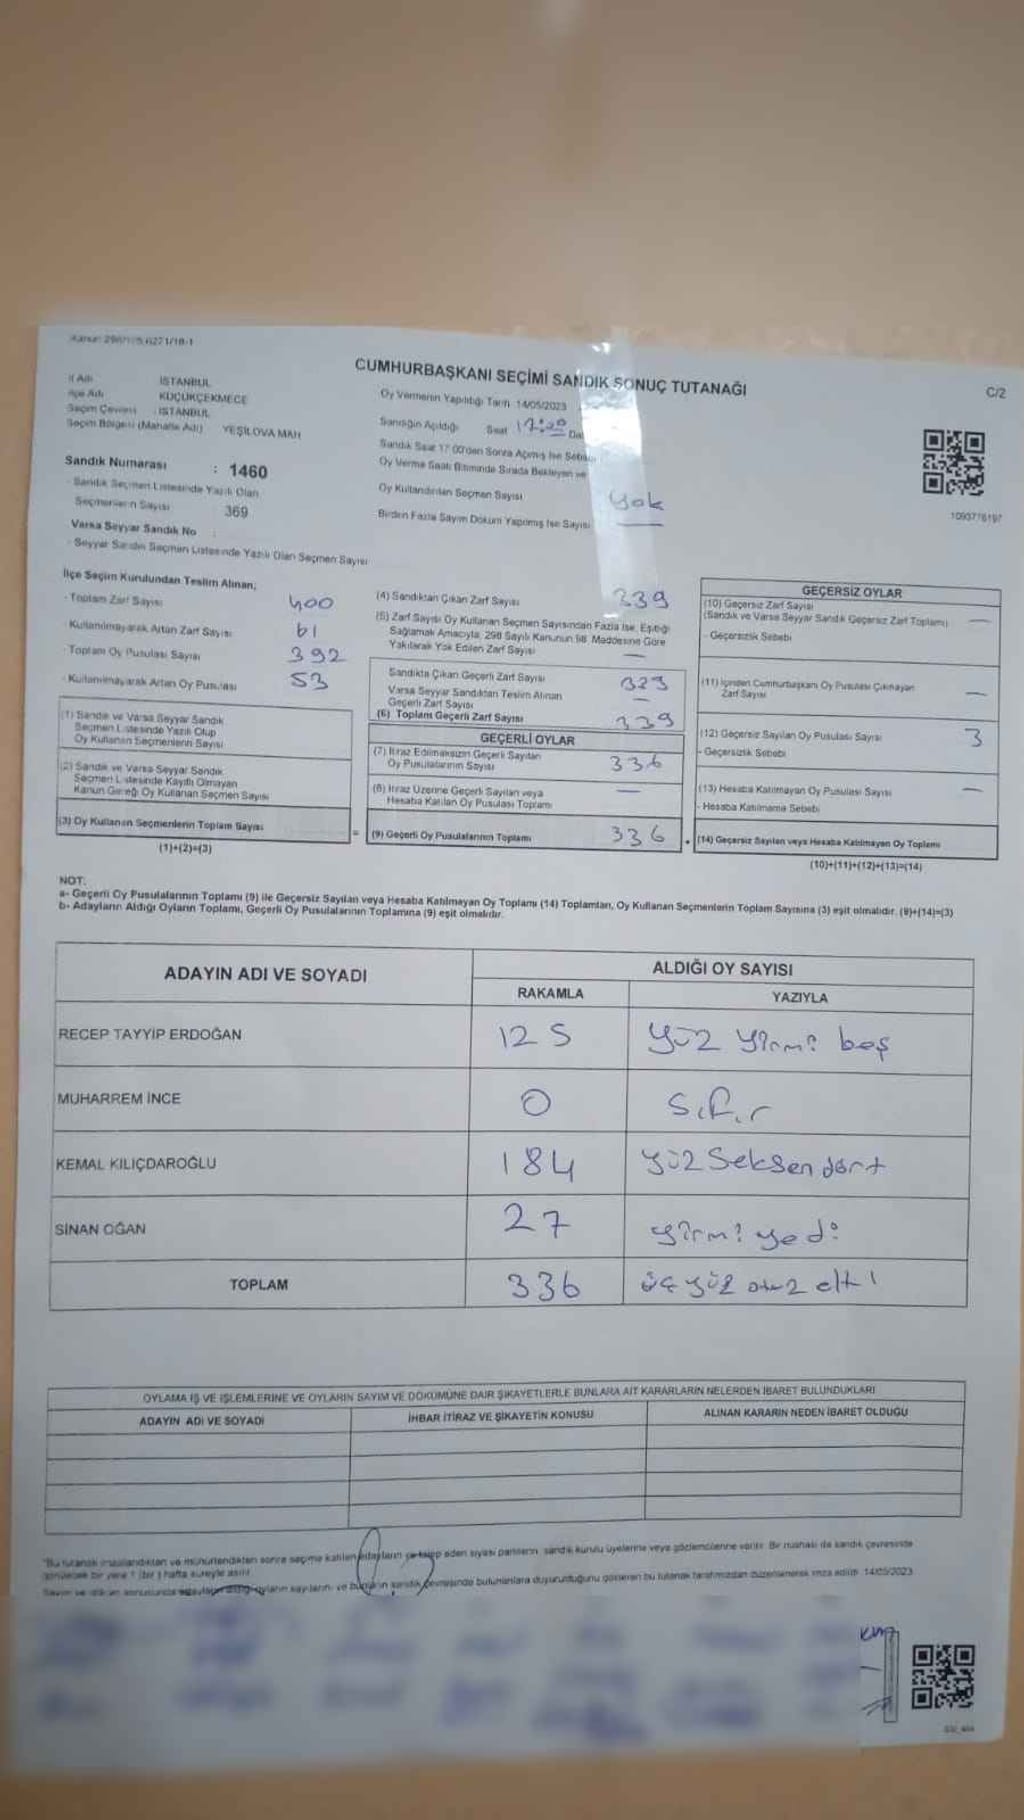 CUMHURBAŞKANI SEÇİMİ SANDIK SONUÇ TUTANAĞI
C/2
İl Adı İSTANBUL
İlçe Adı KÜÇÜKÇEKMECE
Seçim Çevresi : İSTANBUL
Seçim Bölgesi (Mahalle Adı) YEŞİLOVA MAH
Oy Vermenin Yapıldığı Tarih :14/05/2023
Sandığın Açıldığı Saat
Sandık Saat 17:00'den Sonra Açılmış İse
Oy Verme Saati Bitiminde Sırada Bekleyen ve
Oy Kullandırılan Seçmen Sayısı yok
Birden Fazla Sayım Döküm Yapılmış İse Sayısı —
1093776197
Sandık Numarası : 1460
- Sandık Seçmen Listesinde Yazılı Olan
Seçmenlerin Sayısı 369
Varsa Seyyar Sandık No :
- Seyyar Sandık Seçmen Listesinde Yazılı Olan Seçmen Sayısı
İlçe Seçim Kurulundan Teslim Alınan;
- Toplam Zarf Sayısı 400
- Kullanılmayarak Artan Zarf Sayısı 61
- Toplam Oy Pusulası Sayısı 392
- Kullanılmayarak Artan Oy Pusulası 53
(1) Sandık ve Varsa Seyyar Sandık
Seçmen Listesinde Yazılı Olup
Oy Kullanan Seçmenlerin Sayısı
(2) Sandık ve Varsa Seyyar Sandık
Seçmen Listesinde Kayıtlı Olmayan
Kanun Gereği Oy Kullanan Seçmen Sayısı
(3) Oy Kullanan Seçmenlerin Toplam Sayısı
(1)+(2)=(3)
=
(4) Sandıktan Çıkan Zarf Sayısı 339
(5) Zarf Sayısı Oy Kullanan Seçmen Sayısından Fazla İse, Eşitliği
Sağlamak Amacıyla, 298 Sayılı Kanunun 98. Maddesine Göre
Yakılarak Yok Edilen Zarf Sayısı —
Sandıkta Çıkan Geçerli Zarf Sayısı
Varsa Seyyar Sandıktan Teslim Alınan
Geçerli Zarf Sayısı —
(6) Toplam Geçerli Zarf Sayısı 339
GEÇERLİ OYLAR
(7) İtiraz Edilmeksizin Geçerli Sayılan
Oy Pusulalarının Sayısı 336
(8) İtiraz Üzerine Geçerli Sayılan veya
Hesaba Katılan Oy Pusulası Toplamı —
(9) Geçerli Oy Pusulalarının Toplamı 336
+
GEÇERSİZ OYLAR
(10) Geçersiz Zarf Sayısı
(Sandık ve Varsa Seyyar Sandık Geçersiz Zarf Toplamı) —
- Geçersizlik Sebebi
(11) İçinden Cumhurbaşkanı Oy Pusulası Çıkmayan
Zarf Sayısı —
(12) Geçersiz Sayılan Oy Pusulası Sayısı 3
- Geçersizlik Sebebi
(13) Hesaba Katılmayan Oy Pusulası Sayısı —
- Hesaba Katılmama Sebebi
(14) Geçersiz Sayılan veya Hesaba Katılmayan Oy Toplamı
(10)+(11)+(12)+(13)=(14)
NOT:
a- Geçerli Oy Pusulalarının Toplamı (9) ile Geçersiz Sayılan veya Hesaba Katılmayan Oy Toplamı (14) Toplamları, Oy Kullanan Seçmenlerin Toplam Sayısına (3) eşit olmalıdır. (9)+(14)=(3)
b- Adayların Aldığı Oyların Toplamı, Geçerli Oy Pusulalarının Toplamına (9) eşit olmalıdır.
ADAYIN ADI VE SOYADI ALDIĞI OY SAYISI
RAKAMLA YAZIYLA
RECEP TAYYİP ERDOĞAN 125 yüz yirmi beş
MUHARREM İNCE 0 sıfır
KEMAL KILIÇDAROĞLU 184 yüz seksen dört
SİNAN OĞAN 27 yirmi yedi
TOPLAM 336 üç yüz otuz altı
OYLAMA İŞ VE İŞLEMLERİNE VE OYLARIN SAYIM VE DÖKÜMÜNE DAİR ŞİKAYETLERLE BUNLARA AİT KARARLARIN NELERDEN İBARET BULUNDUKLARI
ADAYIN ADI VE SOYADI İHBAR İTİRAZ VE ŞİKAYETİN KONUSU ALINAN KARARIN NEDEN İBARET OLDUĞU